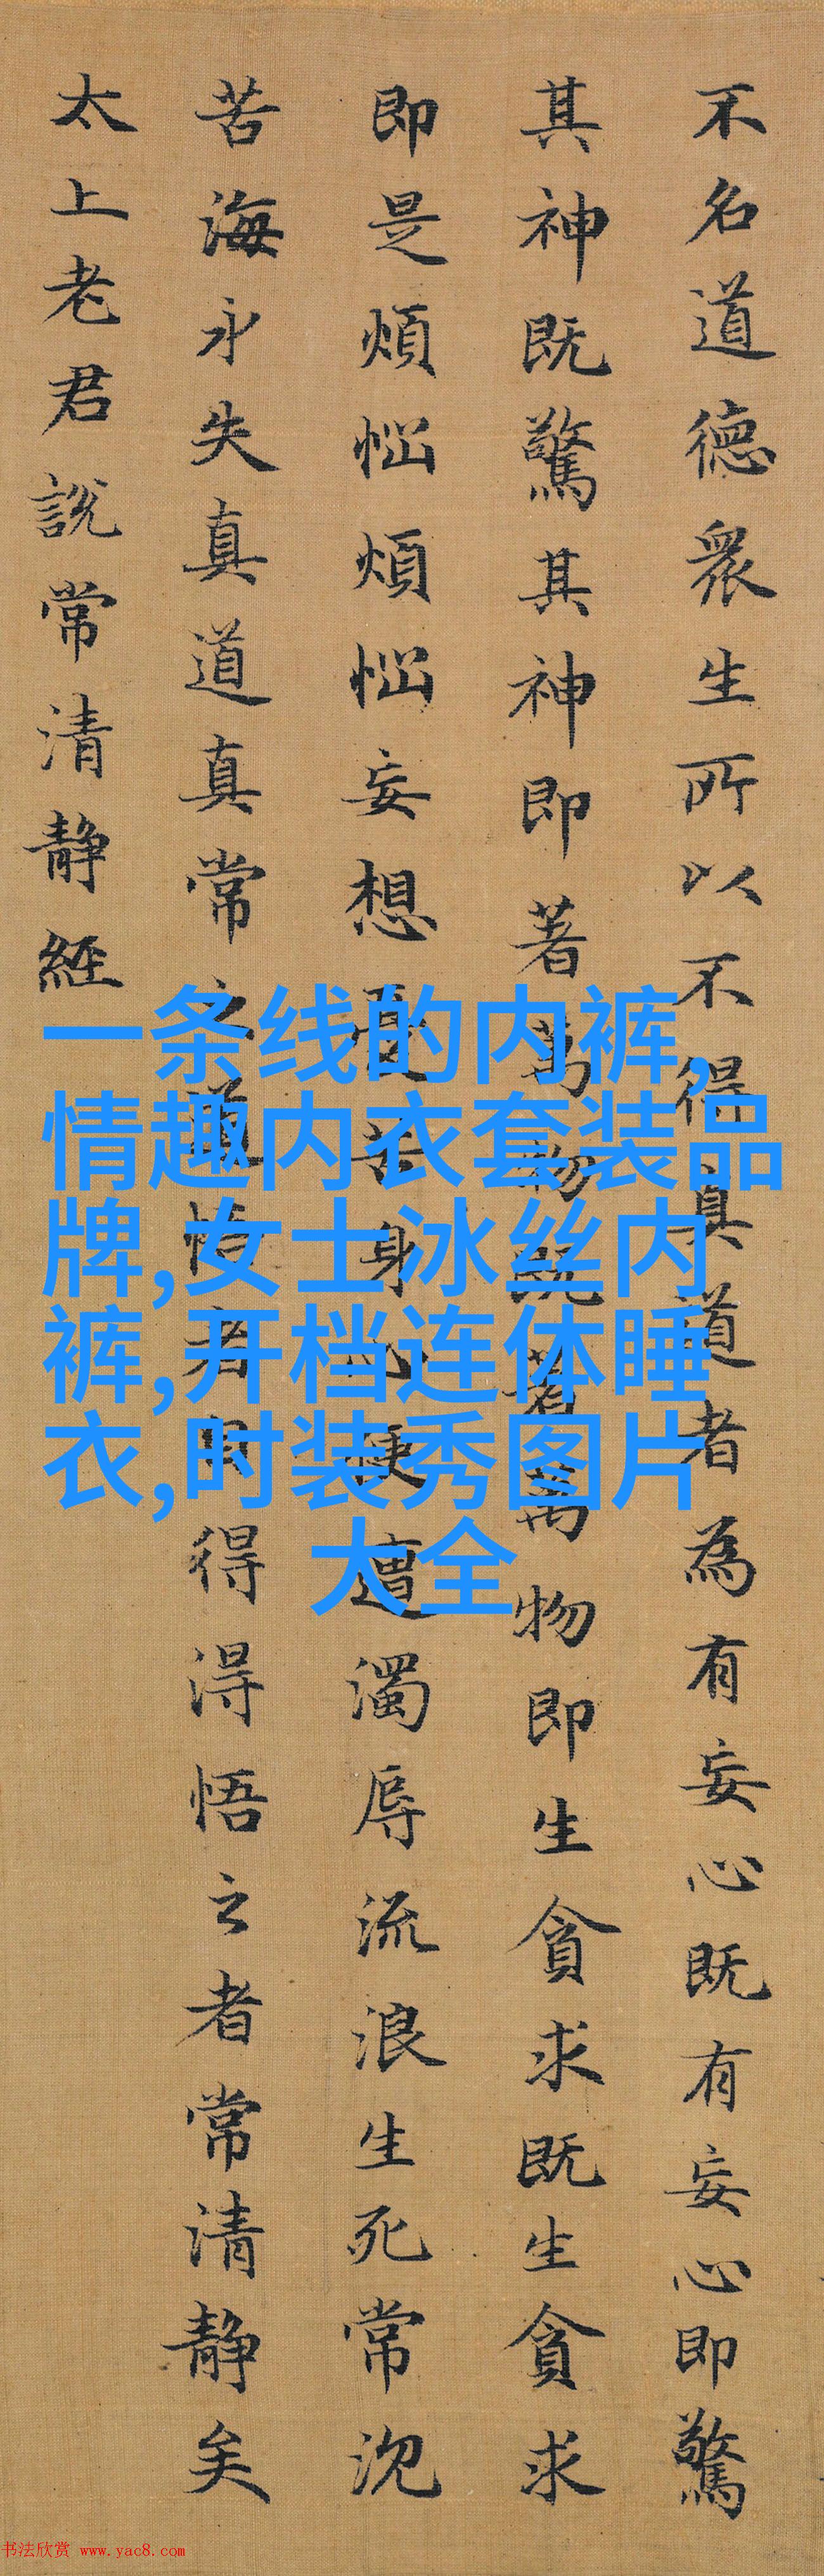 不名道德眾生所以不得真道者為有妄心既有妄心即驚
其神既驚其神即著萬物既著萬物即生貪求既生貪求
即是煩惱煩惱妄想憂苦身心便遭濁辱流浪生死常沉
苦海永失真道真常之道悟者自得得悟之者常清靜矣
太上老君說常清靜經
一条线的内裤,
情趣内衣套装品
牌,女士冰丝内
裤,开档连体睡
衣,时装秀图片
大全
书法欣赏 www.yac8.com